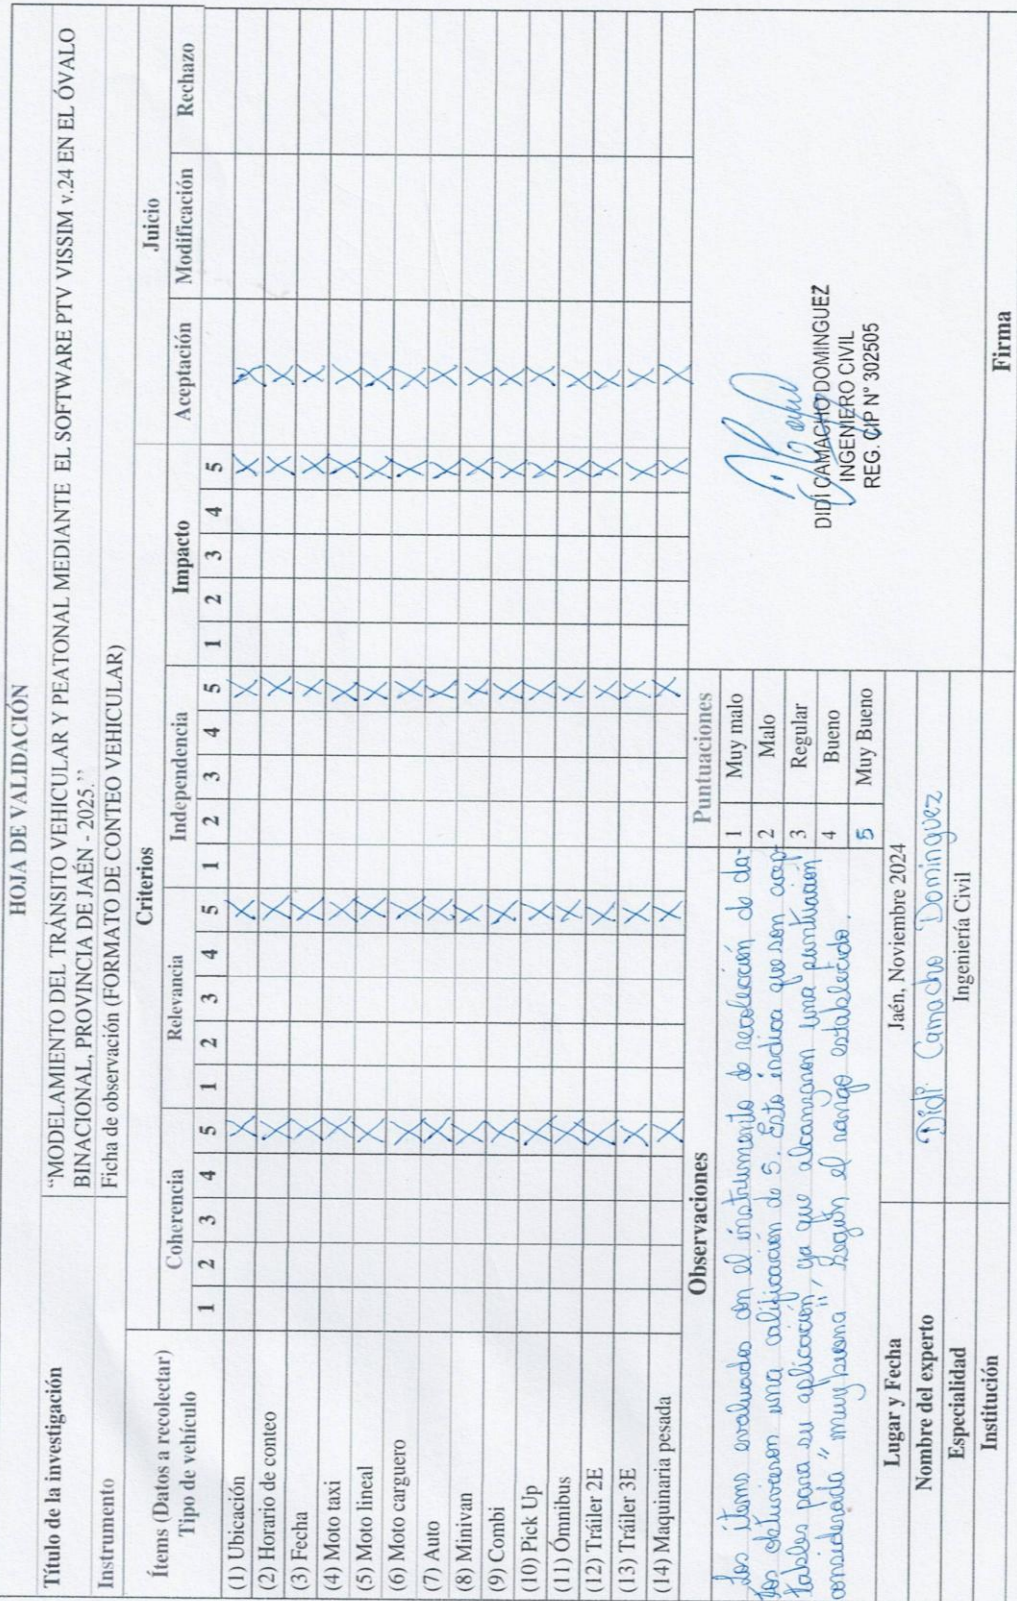 HOJA DE VALIDACIÓN
Título de la investigación
“MODELAMIENTO DEL TRÁNSITO VEHICULAR Y PEATONAL MEDIANTE EL SOFTWARE PTV VISSIM v.24 EN EL ÓVALO
BINACIONAL, PROVINCIA DE JAÉN - 2025.”
Instrumento
Ficha de observación (FORMATO DE CONTEO VEHICULAR)
Ítems (Datos a recolectar)
Tipo de vehículo
Criterios
Juicio
Coherencia Relevancia Independencia Impacto
Aceptación Modificación Rechazo
1 2 3 4 5 1 2 3 4 5 1 2 3 4 5 1 2 3 4 5
(1) Ubicación X X X X X
(2) Horario de conteo X X X X X
(3) Fecha X X X X X
(4) Moto taxi X X X X X
(5) Moto lineal X X X X X
(6) Moto carguero X X X X X
(7) Auto X X X X X
(8) Minivan X X X X X
(9) Combi X X X X X
(10) Pick Up X X X X X
(11) Ómnibus X X X X X
(12) Tráiler 2E X X X X X
(13) Tráiler 3E X X X X X
(14) Maquinaria pesada X X X X X
Observaciones
Los ítems evaluados con el instrumento de recolección de da-
tos obtuvieron una calificación de 5. Esto indica que son acep-
tables para su aplicación, ya que alcanzaron una puntuación
considerada "muy buena" según el rango establecido.
Puntuaciones
1 Muy malo
2 Malo
3 Regular
4 Bueno
5 Muy Bueno
DIDÍ CAMACHO DOMINGUEZ
INGENIERO CIVIL
REG. CIP N° 302505
Lugar y Fecha
Jaén, Noviembre 2024
Nombre del experto
Didí Camacho Dominguez
Especialidad
Ingeniería Civil
Institución
Firma